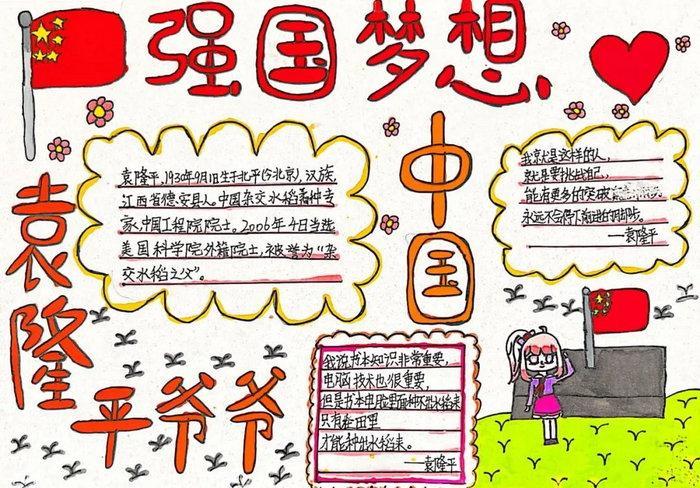 强国梦想
中国
袁隆平爷爷
袁隆平,1930年9月1日生于北平(今北京),汉族,
江西省德安县人.中国杂交水稻育种专
家,中国工程院院士。2006年4日当选
美国科学院外籍院士,被誉为“杂
交水稻之父”。
我就是这样的人,
就是要挑战自己,
能有更多的突破
永远不会停下前进的脚步。
—袁隆平
我说书本知识非常重要,
电脑技术也很重要,
但是书本电脑里面种不出水稻来
只有在田里
才能种出水稻来。
—袁隆平